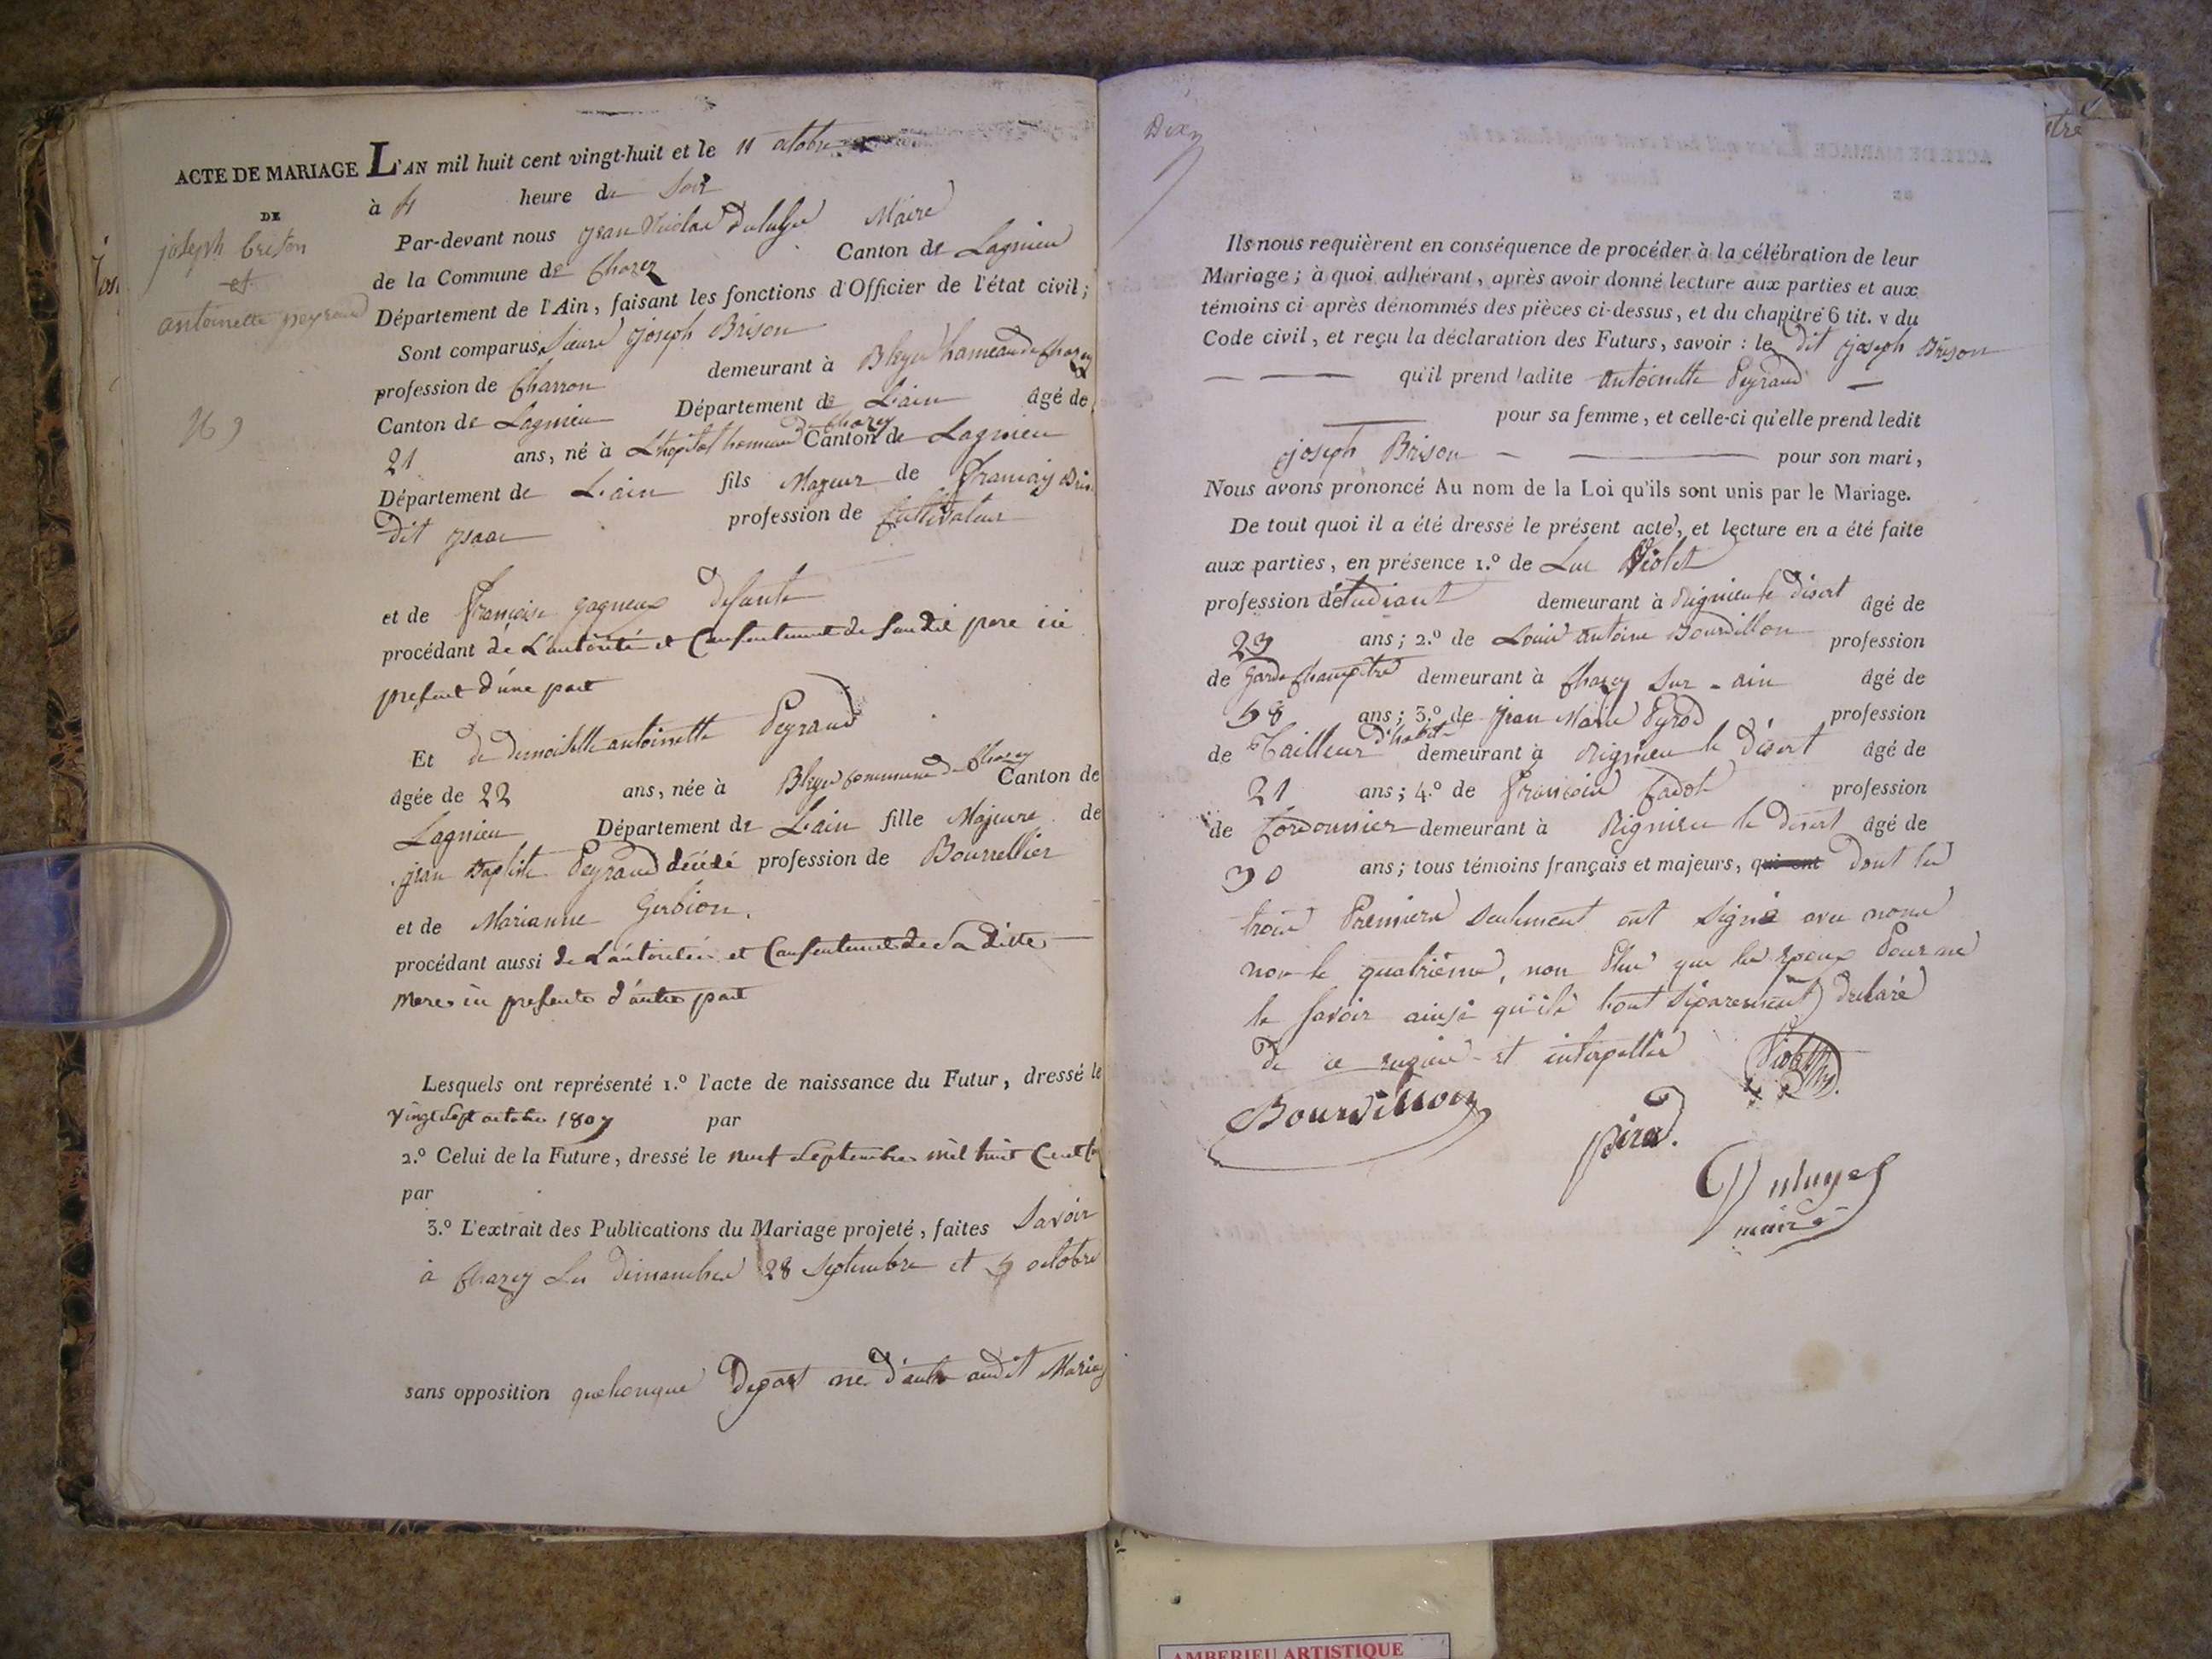 ACTE DE MARIAGE
DE
joseph brison
et
antoinette peyraud
L'AN mil huit cent vingt-huit et le 11 octobre
à 4 heure de Soir
Par-devant nous Maire
de la Commune de Chazey Canton de Lagnieu
Département de l'Ain, faisant les fonctions d'Officier de l'état civil;
Sont comparus Sieurs joseph Brison
profession de Charron demeurant à Bleyes hameau de Chazey
Canton de Lagnieu Département de L'ain âgé de
21 ans, né à Lhopital hameau de Chazey Canton de Lagnieu
Département de L'ain fils Majeur de François
dit ysaac profession de Cultivateur
et de Françoise gagneux defunte
procédant de L'autorité et Consentement de Son dit pere ici
present d'une part
Et de demoiselle antoinette Peyraud
âgée de 22 ans, née à Bleyes commune de Chazey Canton de
Lagnieu Département de L'ain fille Majeure de
jean Baptiste Peyraud décédé profession de Bourrellier
et de Marianne
procédant aussi de L'autorité et Consentement de Sa ditte
mere ici presente d'autre part
Lesquels ont représenté 1.º l'acte de naissance du Futur, dressé le
Vingt Sept octobre 1807 par
2.º Celui de la Future, dressé le neuf Septembre mil huit Cent
par
3.º L'extrait des Publications du Mariage projeté, faites Savoir
à Chazey Les dimanches 28 Septembre et 5 octobre
sans opposition quelconque Depart ne d'autre audit
Ils nous requièrent en conséquence de procéder à la célébration de leur
Mariage; à quoi adhérant, après avoir donné lecture aux parties et aux
témoins ci-après dénommés des pièces ci-dessus, et du chapitre 6 tit. v du
Code civil, et reçu la déclaration des Futurs, savoir : le dit joseph Brison
qu'il prend ladite antoinette Peyraud
pour sa femme, et celle-ci qu'elle prend ledit
joseph Brison pour son mari,
Nous avons prononcé Au nom de la Loi qu'ils sont unis par le Mariage.
De tout quoi il a été dressé le présent acte, et lecture en a été faite
aux parties, en présence 1.º de Luc Violet
profession d'étudiant demeurant à Rignieu le désert âgé de
23 ans; 2.º de Louis antoine Bourdillon profession
de Garde Champêtre demeurant à Chazey Sur-ain âgé de
58 ans; 3.º de jean Marie Pyrod profession
de Tailleur d'habit demeurant à Rignieu le désert âgé de
21 ans; 4.º de François profession
de Cordonnier demeurant à Rignieu le désert âgé de
30 ans; tous témoins français et majeurs, qui ont dont les
trois Premiers Seulement ont Signé avec nous
non le quatrième, non Plus que les epoux Pour ne
le Savoir ainsi qu'ils l'ont Séparement declaré
de ce requis et interpellés
Violet
Bourdillon
pirod.
Duluye
maire
AMBERIEU ARTISTIQUE